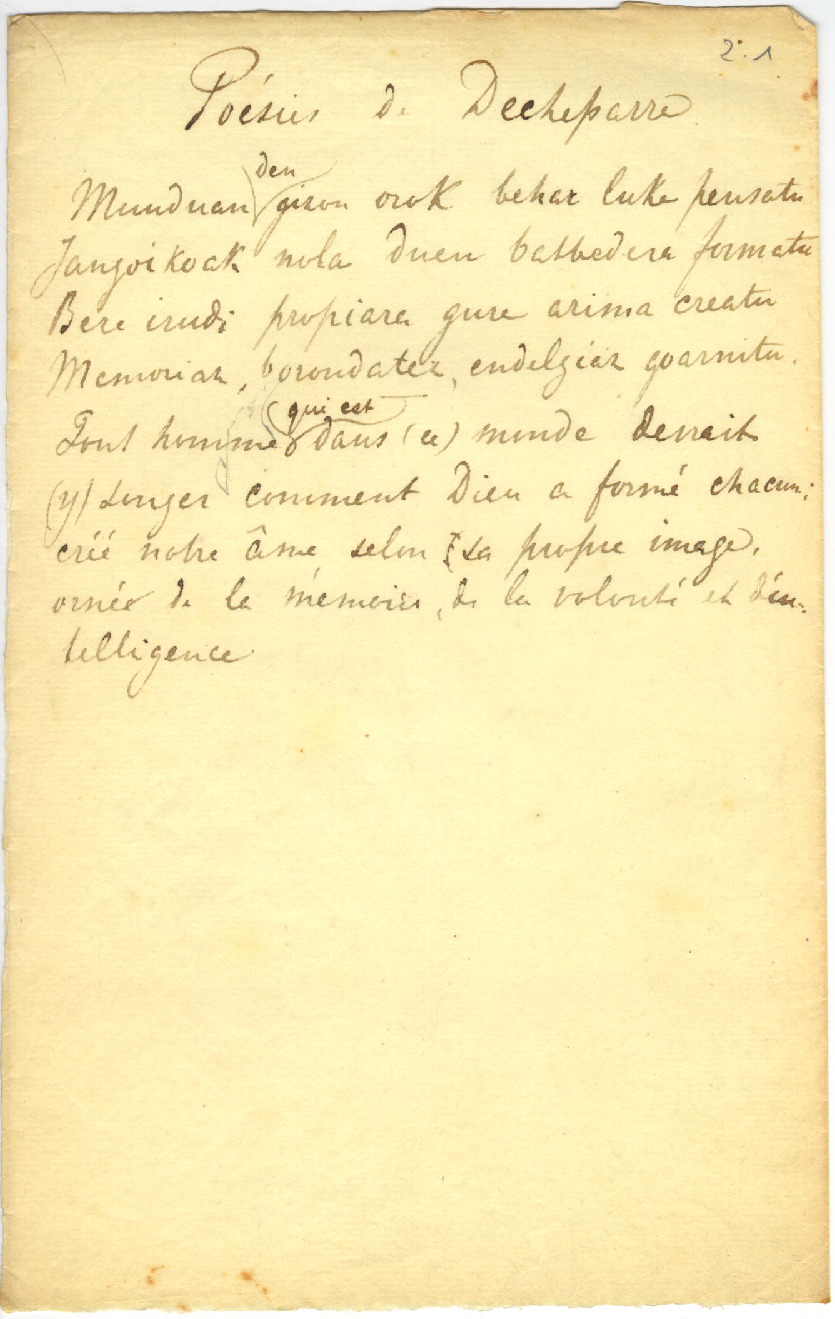 2.1
Poésies de Decheparre
Munduan den gizon orok behar luke pensatu
Jangoikoak nola duen batbedera formatu
Bere irudi propiara gure arima creatu
Memoriaz, borondatez, endelgiaz goarnitu.
Tout homme qui est dans (ce) monde devrait
(y) songer comment Dieu a formé chacun;
créé notre âme selon sa propre image,
ornée de la mémoire, de la volonté et d'in-
telligence